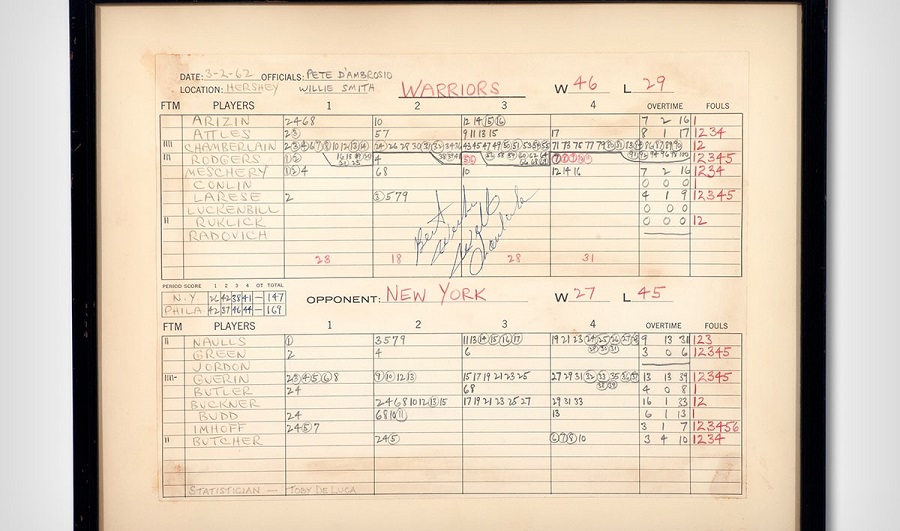 DATE: 3-2-62 OFFICIALS: PETE D'AMBROSIO
LOCATION: HERSHEY WILLIE SMITH WARRIORS W 46 L 29
FTM PLAYERS 1 2 3 4 OVERTIME FOULS
ARIZIN 2 4 6 8 10 12 14 15 16 7 2 16 1
ATTLES 2 3 5 7 9 11 13 15 17 8 1 17 1 2 3 4
CHAMBERLAIN 1 2
RODGERS 1 2 4 1 2 3 4 5
MESCHERY 1 2 4 6 8 10 12 14 16 7 2 16 1 2 3 4
CONLIN 0 0 0
LARESE 2 3 5 7 9 4 1 9 1 2 3 4 5
LUCKENBILL 0 0 0
RUKLICK 0 0 0 1 2
RADOVICH
Best Wishes
Wilt Chamberlain
28 18 28 31
PERIOD SCORE 1 2 3 4 OT TOTAL
N.Y. 26 42 38 41 — 147
PHILA 42 37 46 44 — 169
OPPONENT: NEW YORK W 27 L 45
FTM PLAYERS 1 2 3 4 OVERTIME FOULS
NAULLS 1 3 5 7 9 11 13 14 15 16 17 19 21 23 24 25 26 27 9 13 31 1 2 3
GREEN 2 4 6 3 0 6 1 2 3 4 5
JORDON
GUERIN 2 3 4 5 6 8 9 10 12 13 15 17 19 21 23 25 27 29 31 32 33 35 36 37 13 13 39 1 2 3 4 5
BUTLER 2 4 6 8 4 0 8 1
BUCKNER 2 4 6 8 10 12 13 15 17 19 21 23 25 27 29 31 33 16 1 33 1 2
BUDD 2 4 6 8 10 11 13 6 1 13 1
IMHOFF 2 4 5 7 3 1 7 1 2 3 4 5 6
BUTCHER 2 4 5 6 7 8 10 3 4 10 1 2 3 4
STATISTICIAN — TOBY DE LUCA